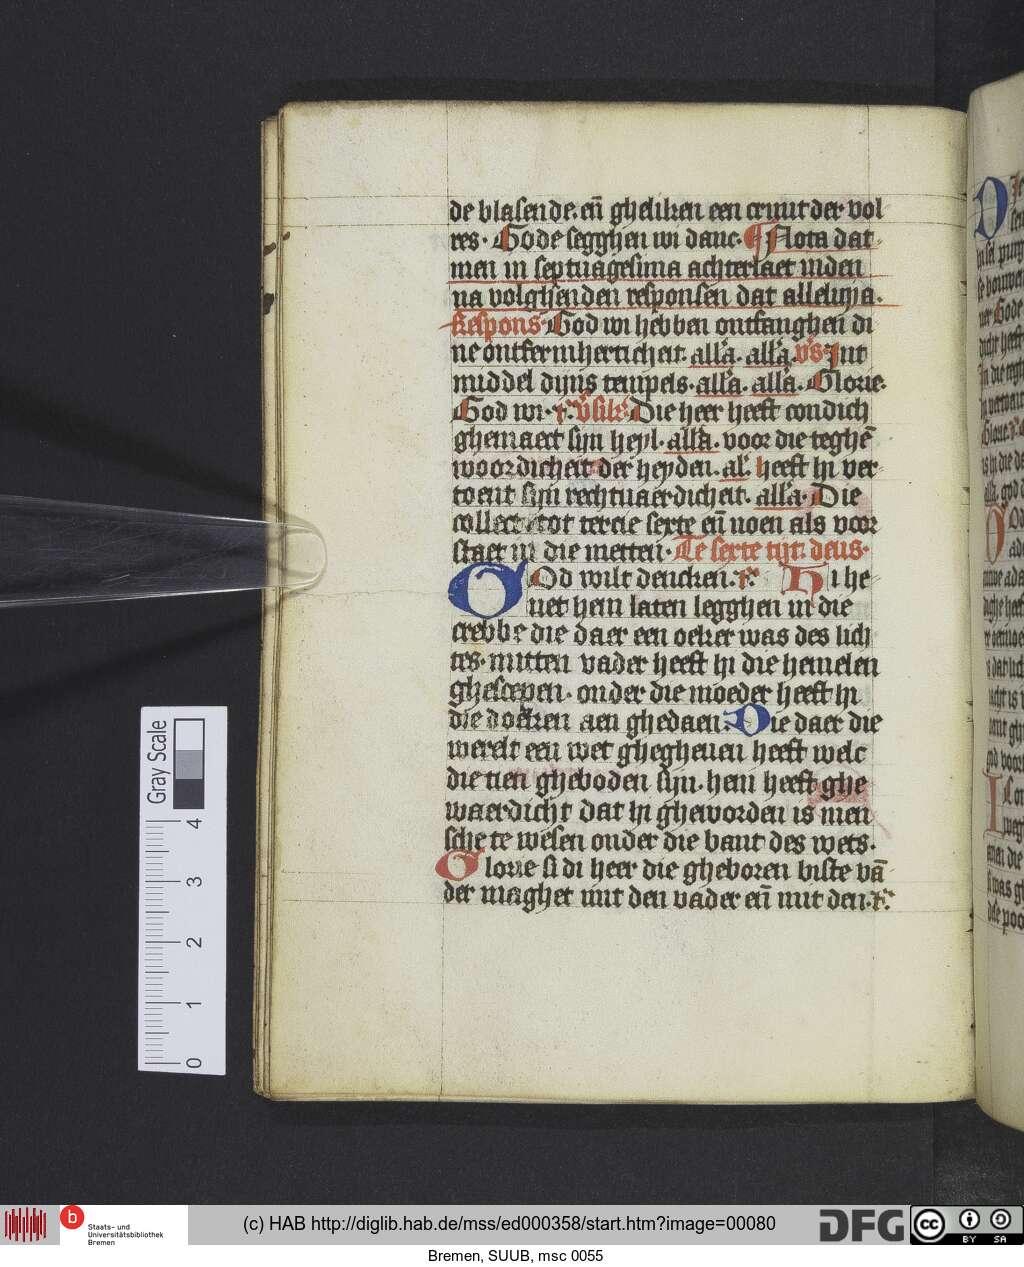 de blasende. en̄ gheliken een cruut der vol
res. Gode segghen wi danc. Nota dat
men in septuagesima achterlaet inden
na volghenden responsen dat alleluya.
Respons God wi hebben ontfanghen di
ne ontfermherticheit. all'a. all'a. v's Int
middel dinis tempels. all'a. all'a. Glorie.
God wi. r. v'sik'. Die heer heeft condich
ghemaect sijn heyl. all'a. voor die teghē
woordicheit der heyden. al'. heeft hi ver
toent sijn rechtuaerdicheit. all'a. Die
collect tot tercie sexte en̄ noen als voor
staet in die metten. Te sexte tijt. deus.
GOd wilt dencken. r. Hi he
uet hem laten legghen in die
crebbe die daer een oeker was des lich
tes. mitten vader heeft hi die hemelen
ghescepen. onder die moeder heeft hi
die doeken aen ghedaen. Die daer die
werelt een wet ghegheuen heeft welc
die tien gheboden sijn. hem heeft ghe
waerdicht dat hi gheworden is men
sche te wesen onder die bant des wets.
Glorie si di heer die gheboren biste vā
der maghet mit den vader en̄ mit den. r.
Gray Scale
4
3
2
1
0
b
Staats- und
Universitätsbibliothek
Bremen
(c) HAB http://diglib.hab.de/mss/ed000358/start.htm?image=00080
DFG
cc
BY SA
Bremen, SUUB, msc 0055